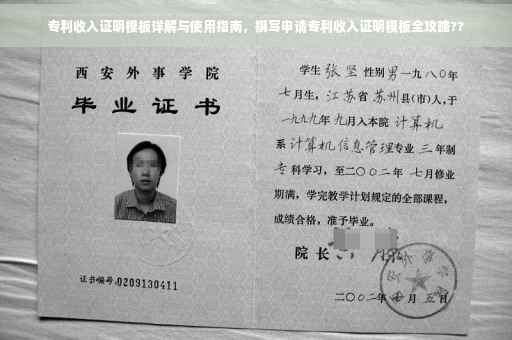 专利收入证明模板详解与使用指南，撰写申请专利收入证明模板全攻略??
西安外事学院
毕业证书
证书编号:0209130411
学生 张坚 性别 男 一九八〇年
七月生，江苏省苏州县(市)人，于
一九九九年九月入本院 计算机
系 计算机信息管理专业 三 年制
专科学习，至二〇〇二年 七月修业
期满，学完教学计划规定的全部课程，
成绩合格，准予毕业。
院长
二〇〇二年 月 五日